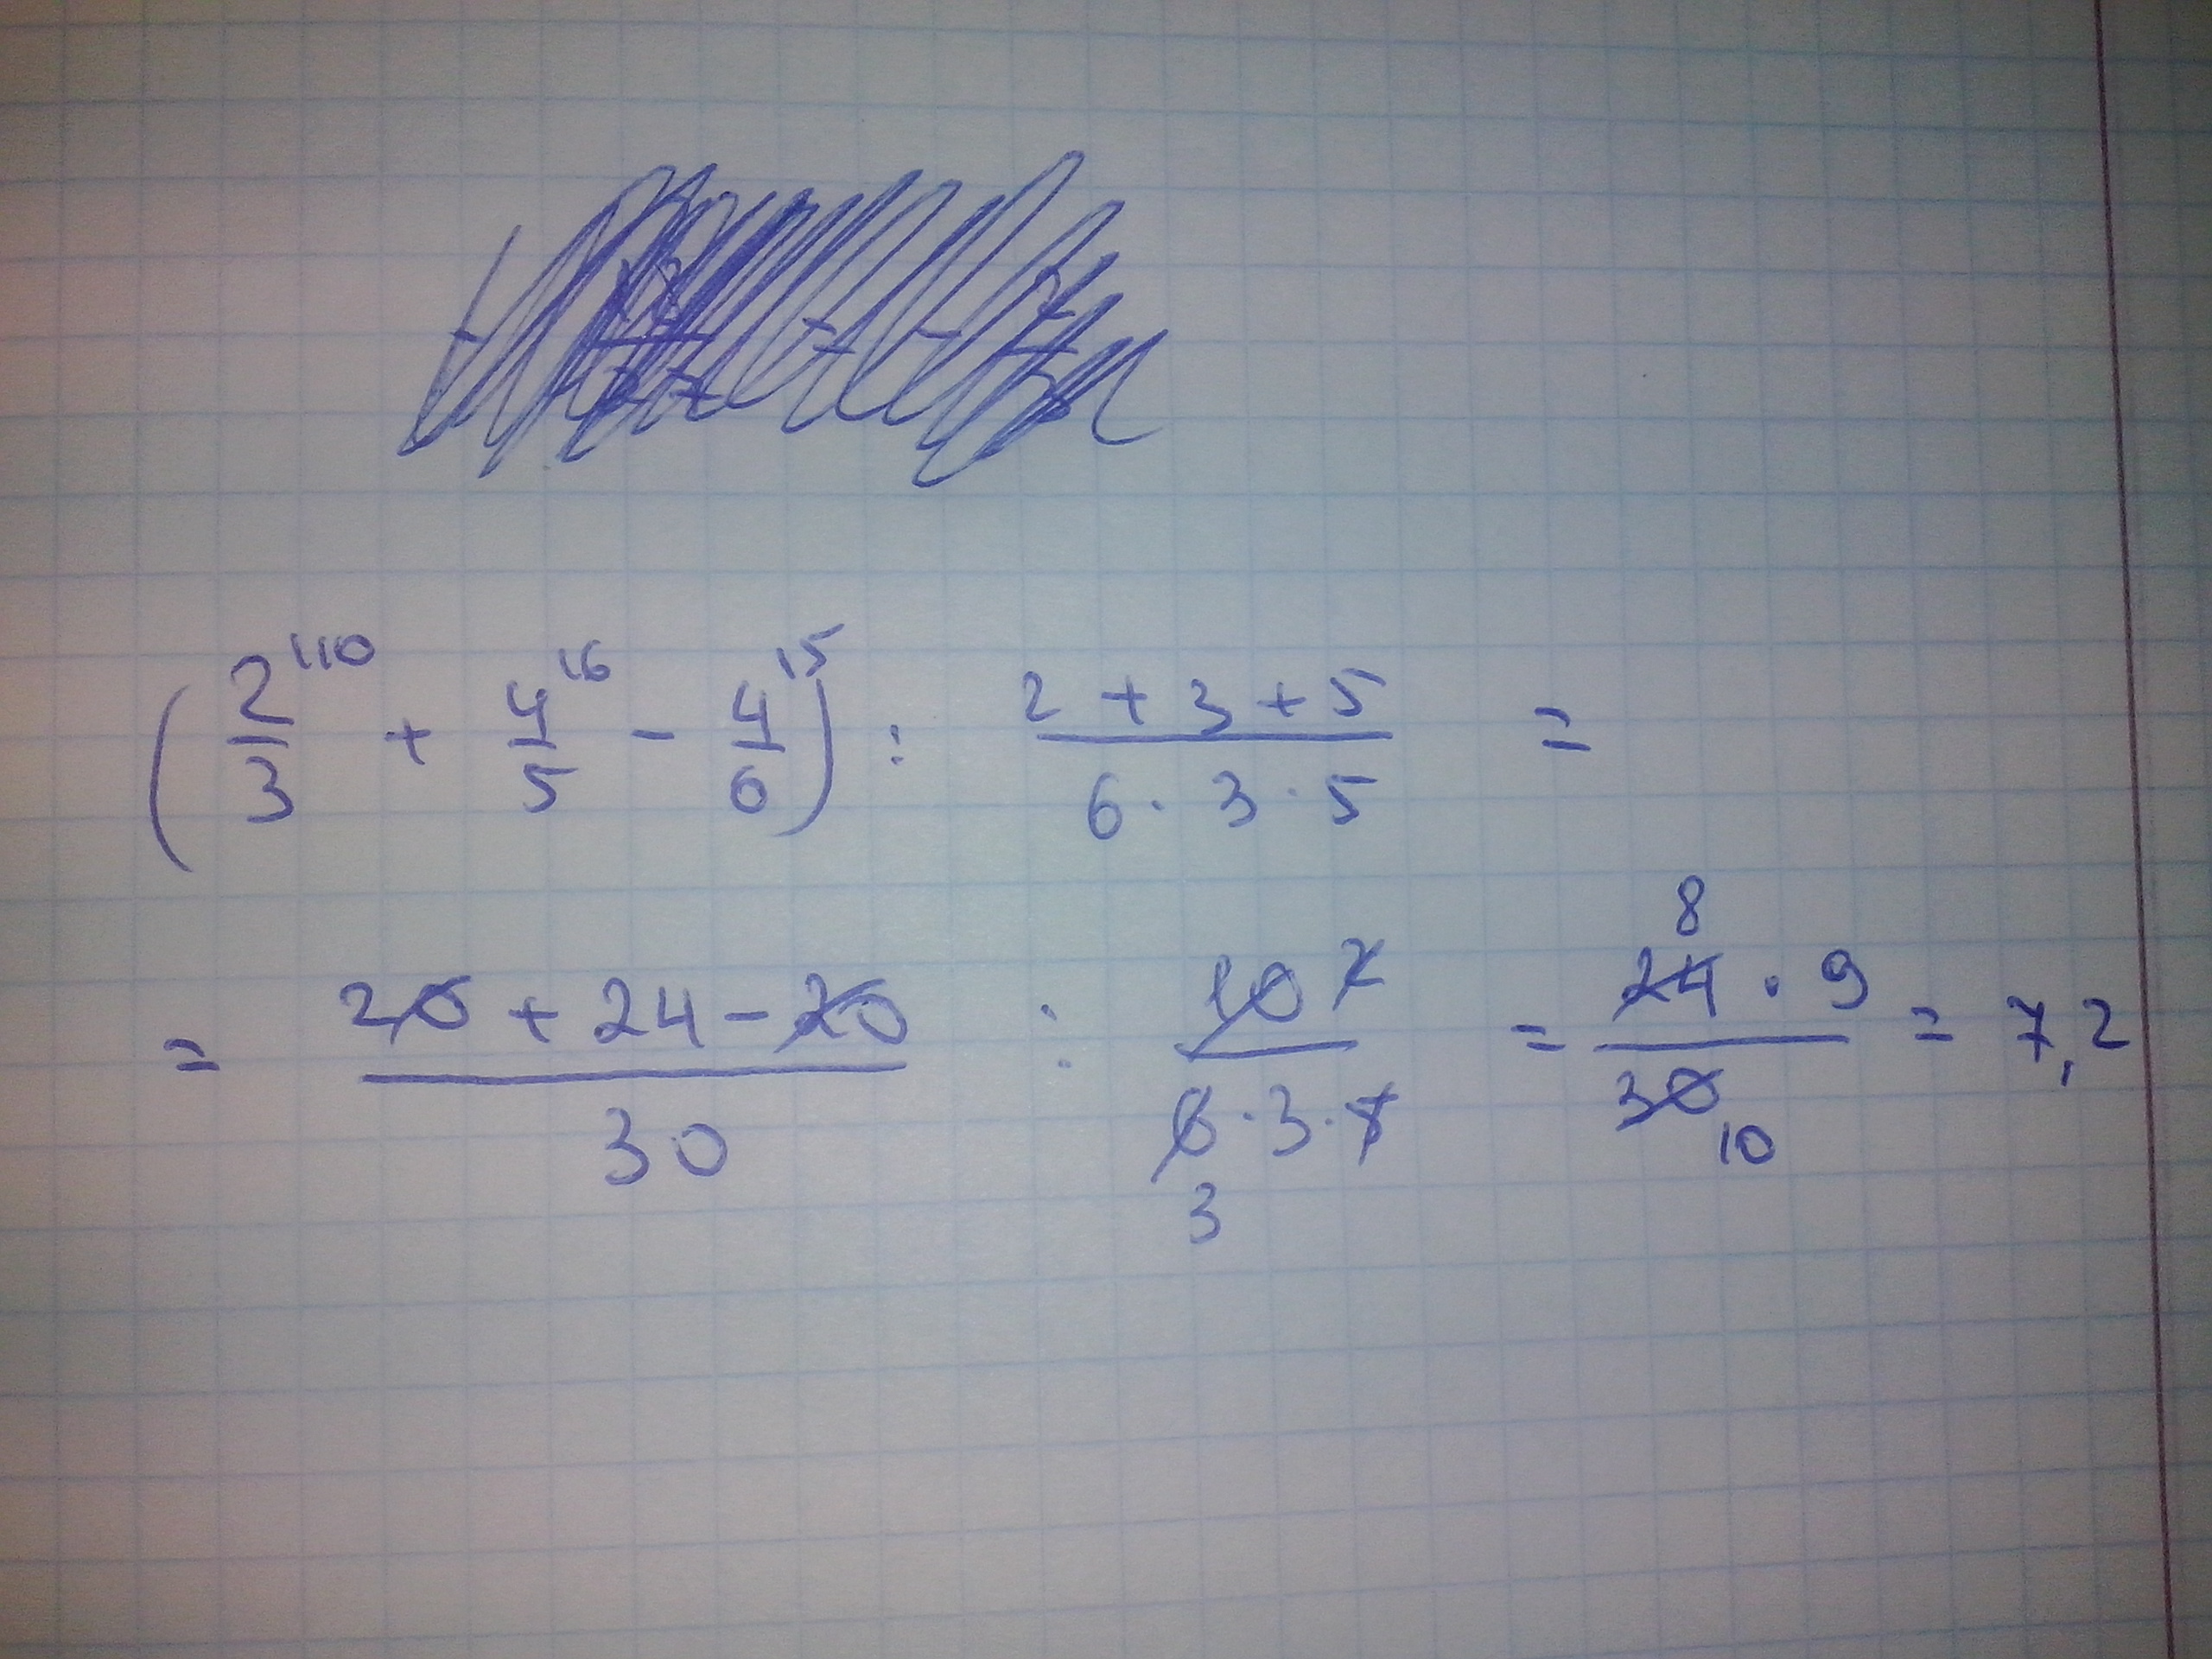 (2/3 ^{110} + 4/5 ^{16} - 4/6 ^{15}) : (2 + 3 + 5)/(6 · 3 · 5) =
= (20 + 24 - 20)/30 : 10 2/(6 · 3 · 5) 3 = 8 24 · 9/30 10 = 7,2